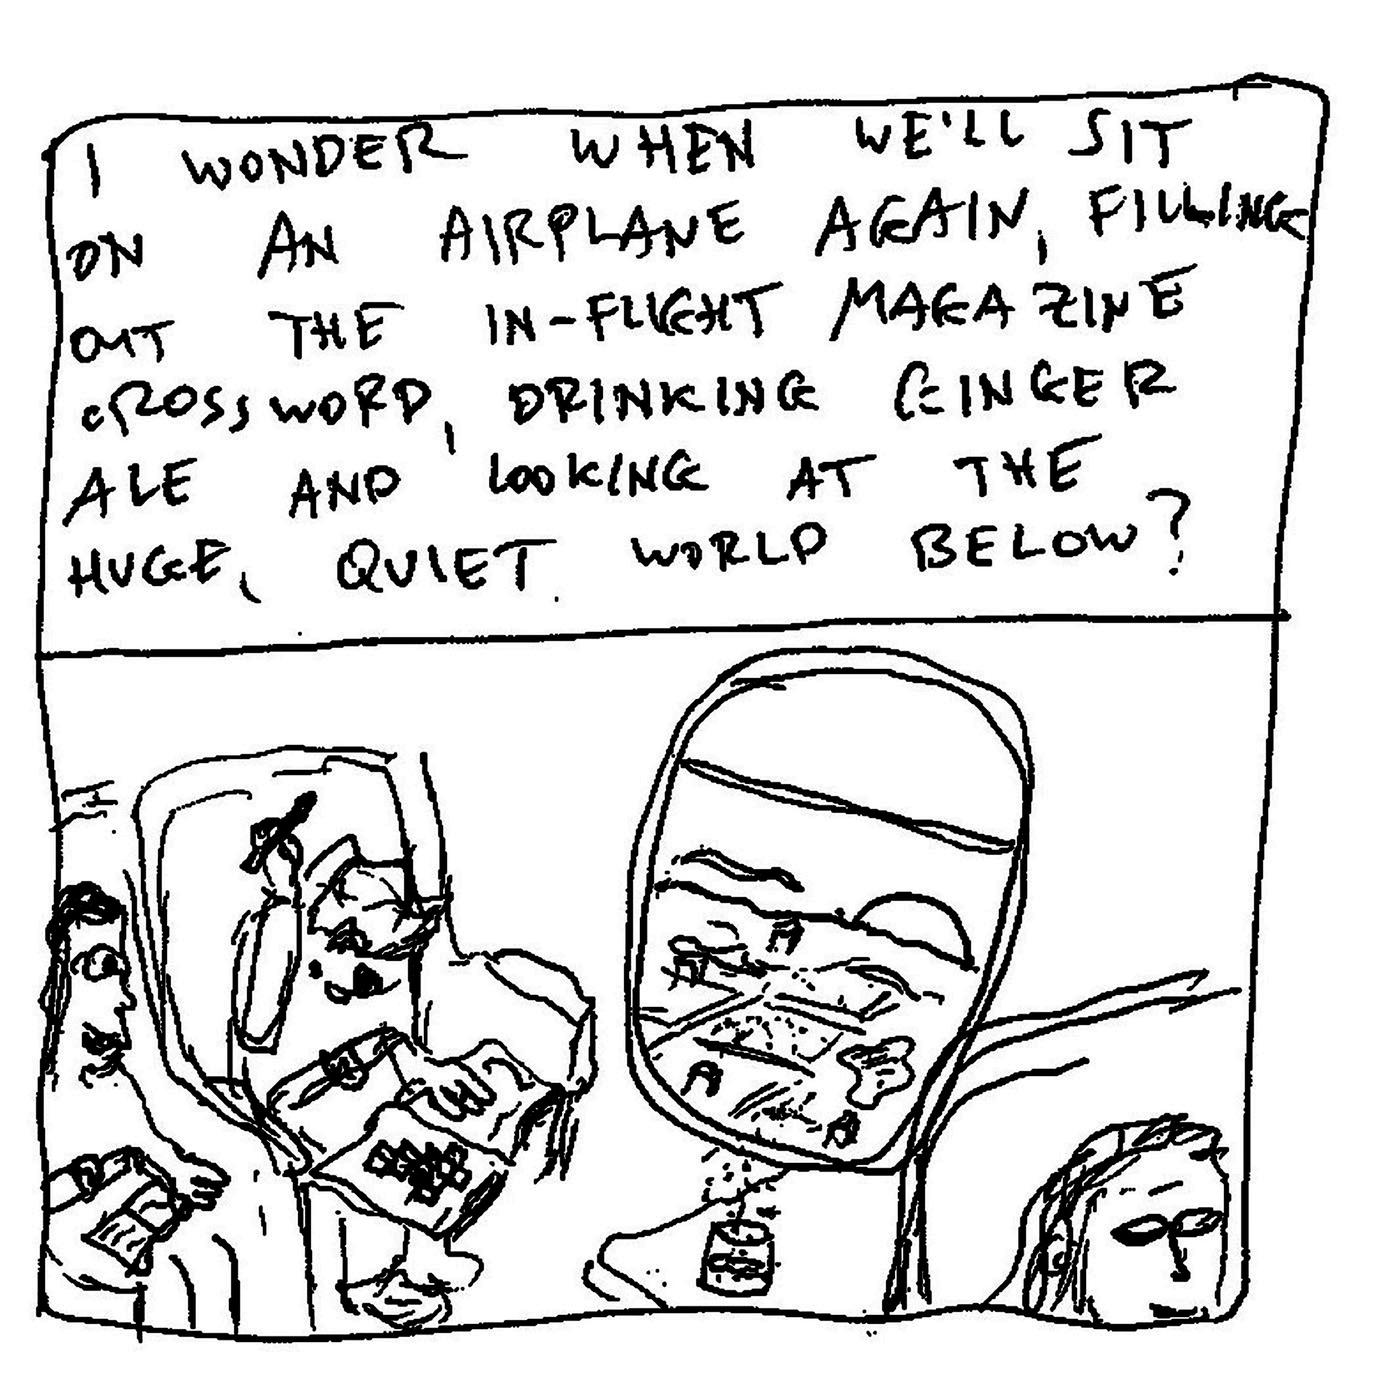 I WONDER WHEN WE'LL SIT
ON AN AIRPLANE AGAIN, FILLING
OUT THE IN-FLIGHT MAGAZINE
CROSSWORD, DRINKING GINGER
ALE AND LOOKING AT THE
HUGE, QUIET WORLD BELOW?